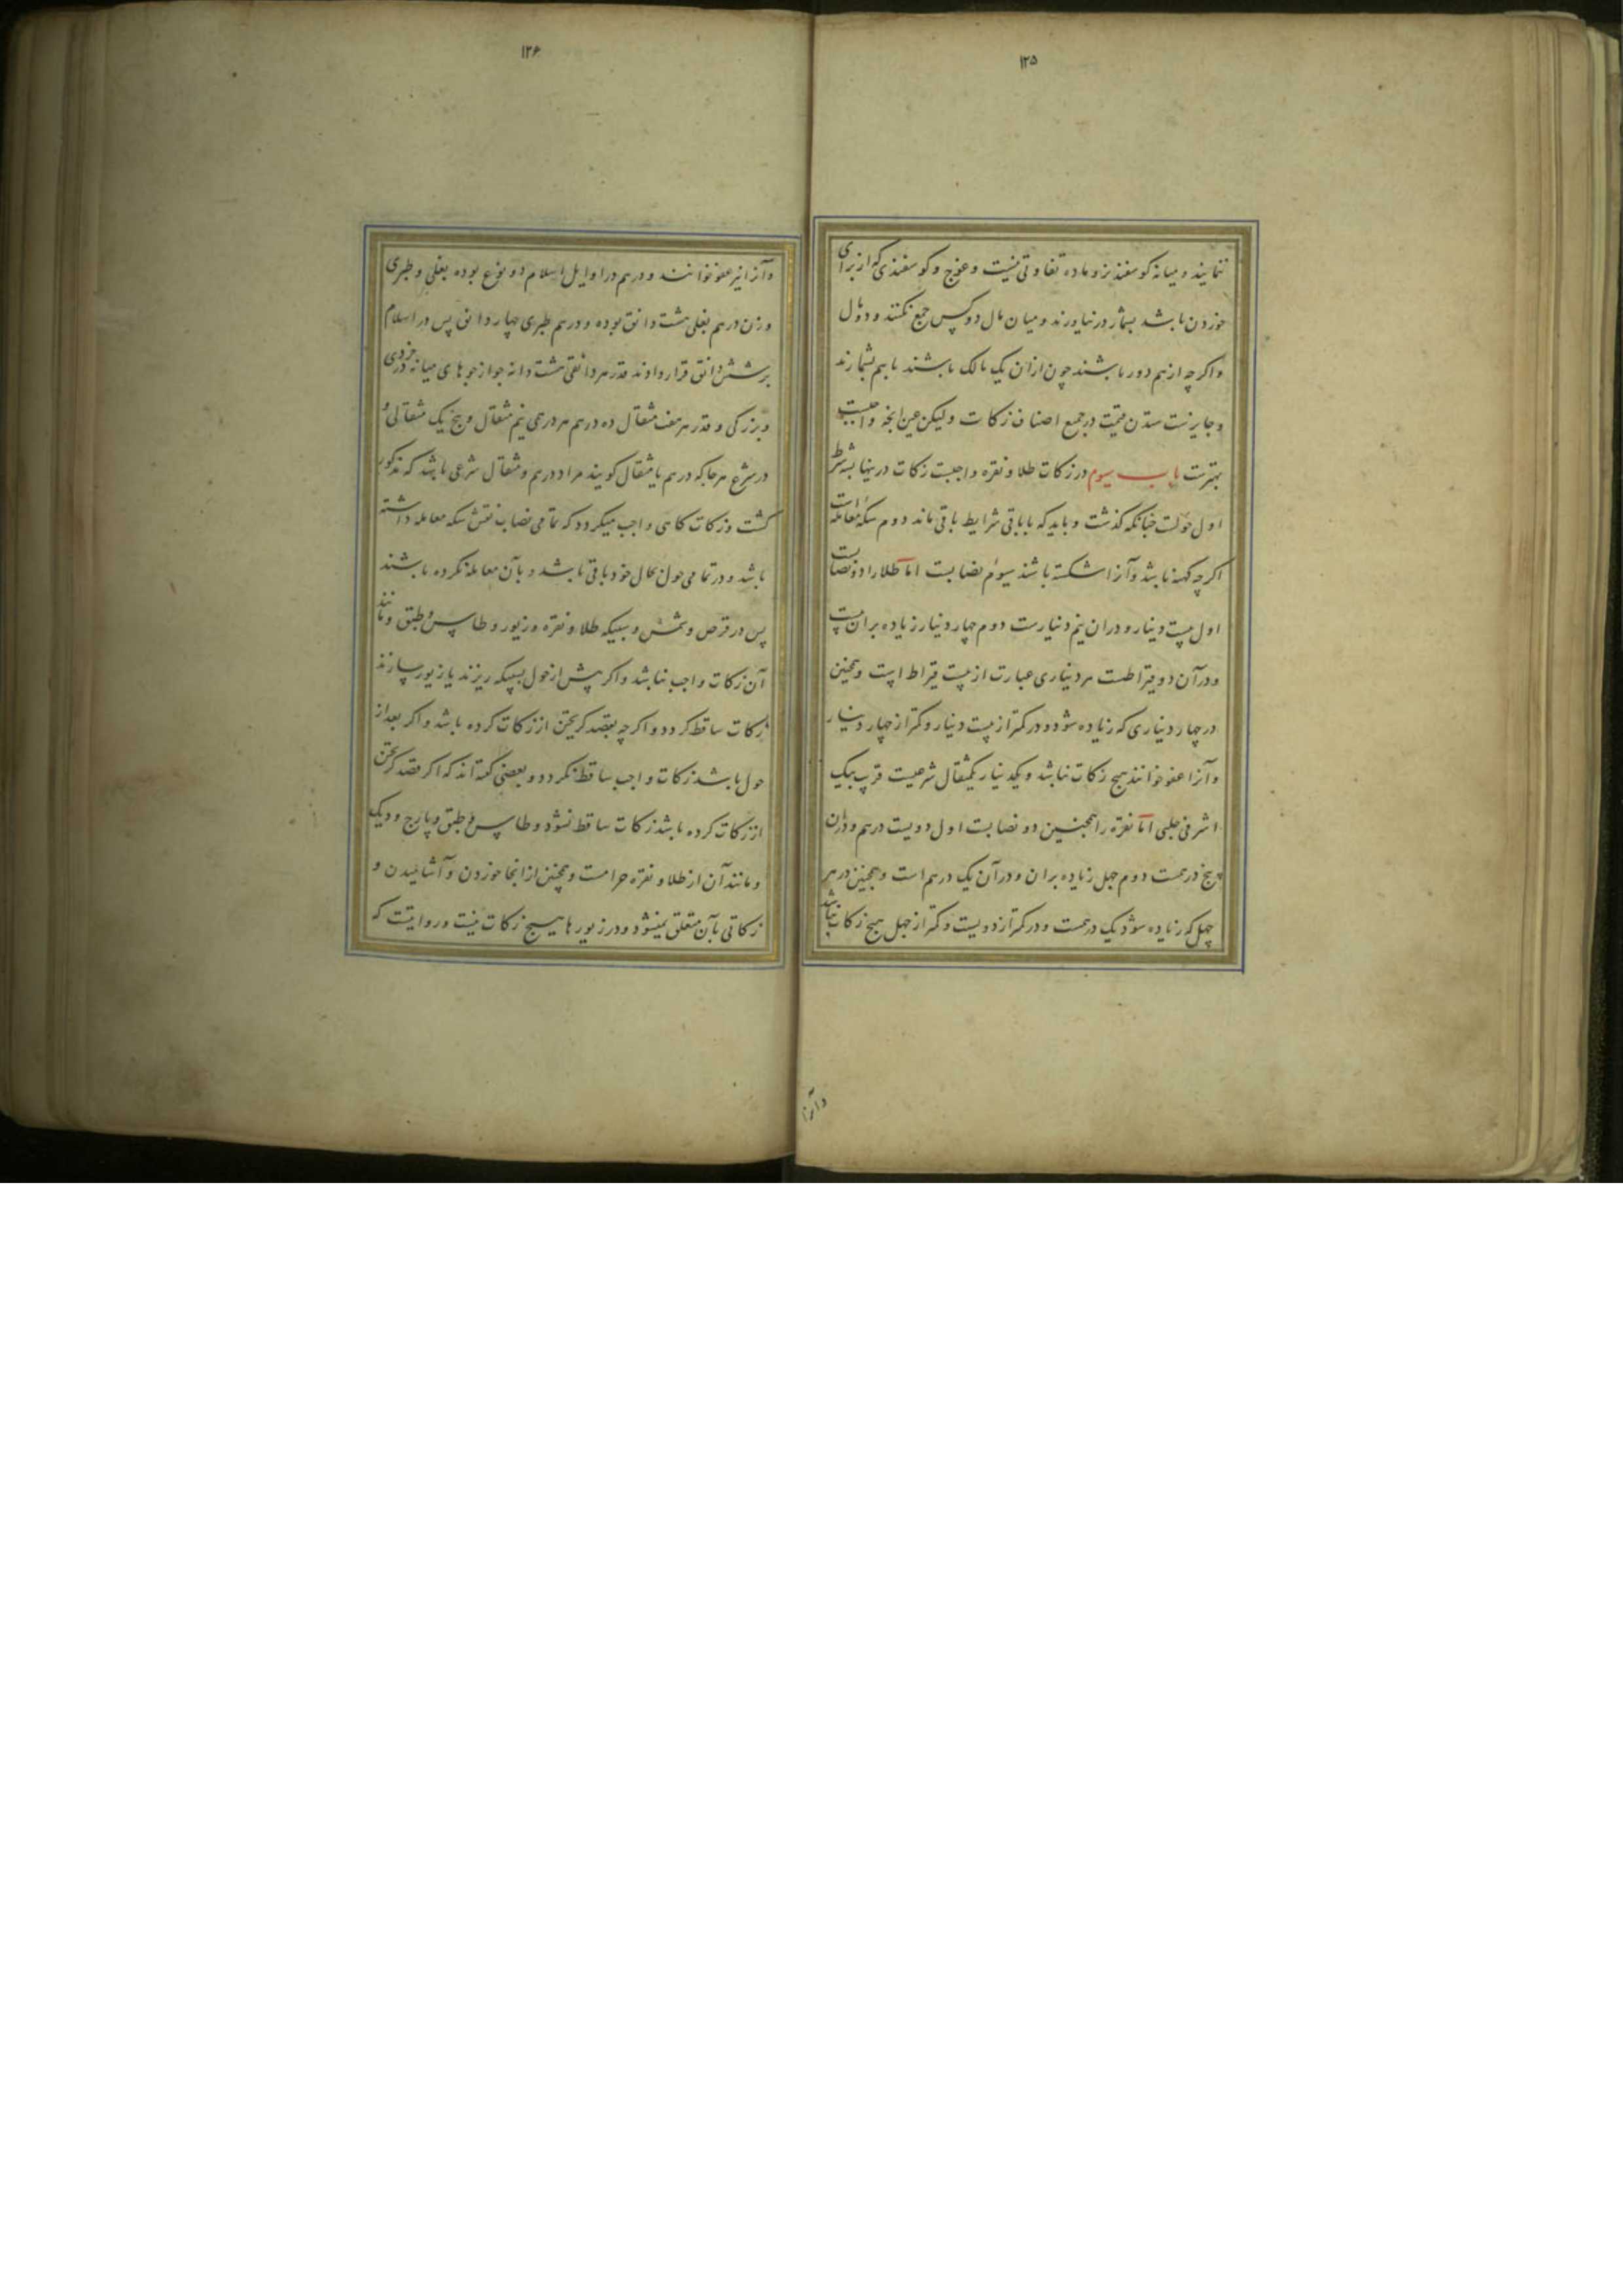 ۱۲۵
ننمایند و میانه کوسفند نر و ماده تفاوتی نیست و عوج و کوسفندی که از برای
خوردن باشد بشمار در نیاورند و میان مال دو کس جمع نکنند و دو مال
و اکر چه از هم دور باشند چون از آن یک مالک باشند با هم بشمارند
و جایزست ستدن قیمت در جمیع اصناف زکات ولیکن عین آنچه واجبست
بهترست باب سیوم در زکات طلا و نقره واجبست زکات درینها بشرط
اول حولست چنانکه کذشت و باید که با باقی شرایط باقی ماند دوم سکه معامله است
اکر چه کهنه باشد و آنرا شکسته باشند سیوم نصابست اما طلا را دو نصابست
اول بیست دینار و در ان نیم دینارست دوم چهار دینار زیاده بر ان بیست
و در آن دو قیراطست هر دیناری عبارت از بیست قیراط است و همچنین
در چهار دیناری که زیاده شود و در کمتر از بیست دینار و کمتر از چهار دینار
و آنرا عفو خوانند هیچ زکات نباشد و یکدینار یکمثقال شرعیست قریب بیک
اشرفی حلبی اما نقره را همچنین دو نصابست اول دویست درهم و در ان
پنج درهمست دوم چهل زیاده بر ان و در آن یک درهم است و همچنین در هر
چهل که زیاده شود یک درهمست و در کمتر از دویست و کمتر از چهل هیچ زکات نباشد
و آنرا
۱۲۶
و آنرا نیز عفو خوانند و درهم در اوایل اسلام دو نوع بوده بغلی و طبری
وزن درهم بغلی هشت دانق بوده و درهم طبری چهار دانق پس در اسلام
بر شش دانق قرار دادند قدر هر دانقی هشت دانه جو از جوهای میانه در خردی
و بزرکی و قدر هر هفت مثقال ده درهم هر درهمی نیم مثقال و پنج یک مثقالی و
در شرع هر جا که درهم یا مثقال کویند مراد درهم و مثقال شرعی باشد که مذکور
کشت و زکات کاهی واجب میکردد که تمامی نصاب نقش سکه معامله داشته
باشد و در تمامی حول بحال خود باقی باشد و بآن معامله نکرده باشند
پس در قرص و شمش و سبیکه طلا و نقره و زیور و طاس و طبق و مانند
آن زکات واجب نباشد و اکر پیش از حول بسبیکه ریزند یا زیور سازند
زکات ساقط کردد و اکر چه بقصد کریختن از زکات کرده باشد و اکر بعد از
حول باشد زکات واجب ساقط نکردد و بعضی کفته اند که اکر قصد کریختن
از زکات کرده باشد زکات ساقط نشود و طاس و طبق و پارج و دیک
و مانند آن از طلا و نقره حرامست و همچنین از انجا خوردن و آشامیدن و
زکاتی بآن متعلق نمیشود و در زیورها هیچ زکات نیست و روایتست که